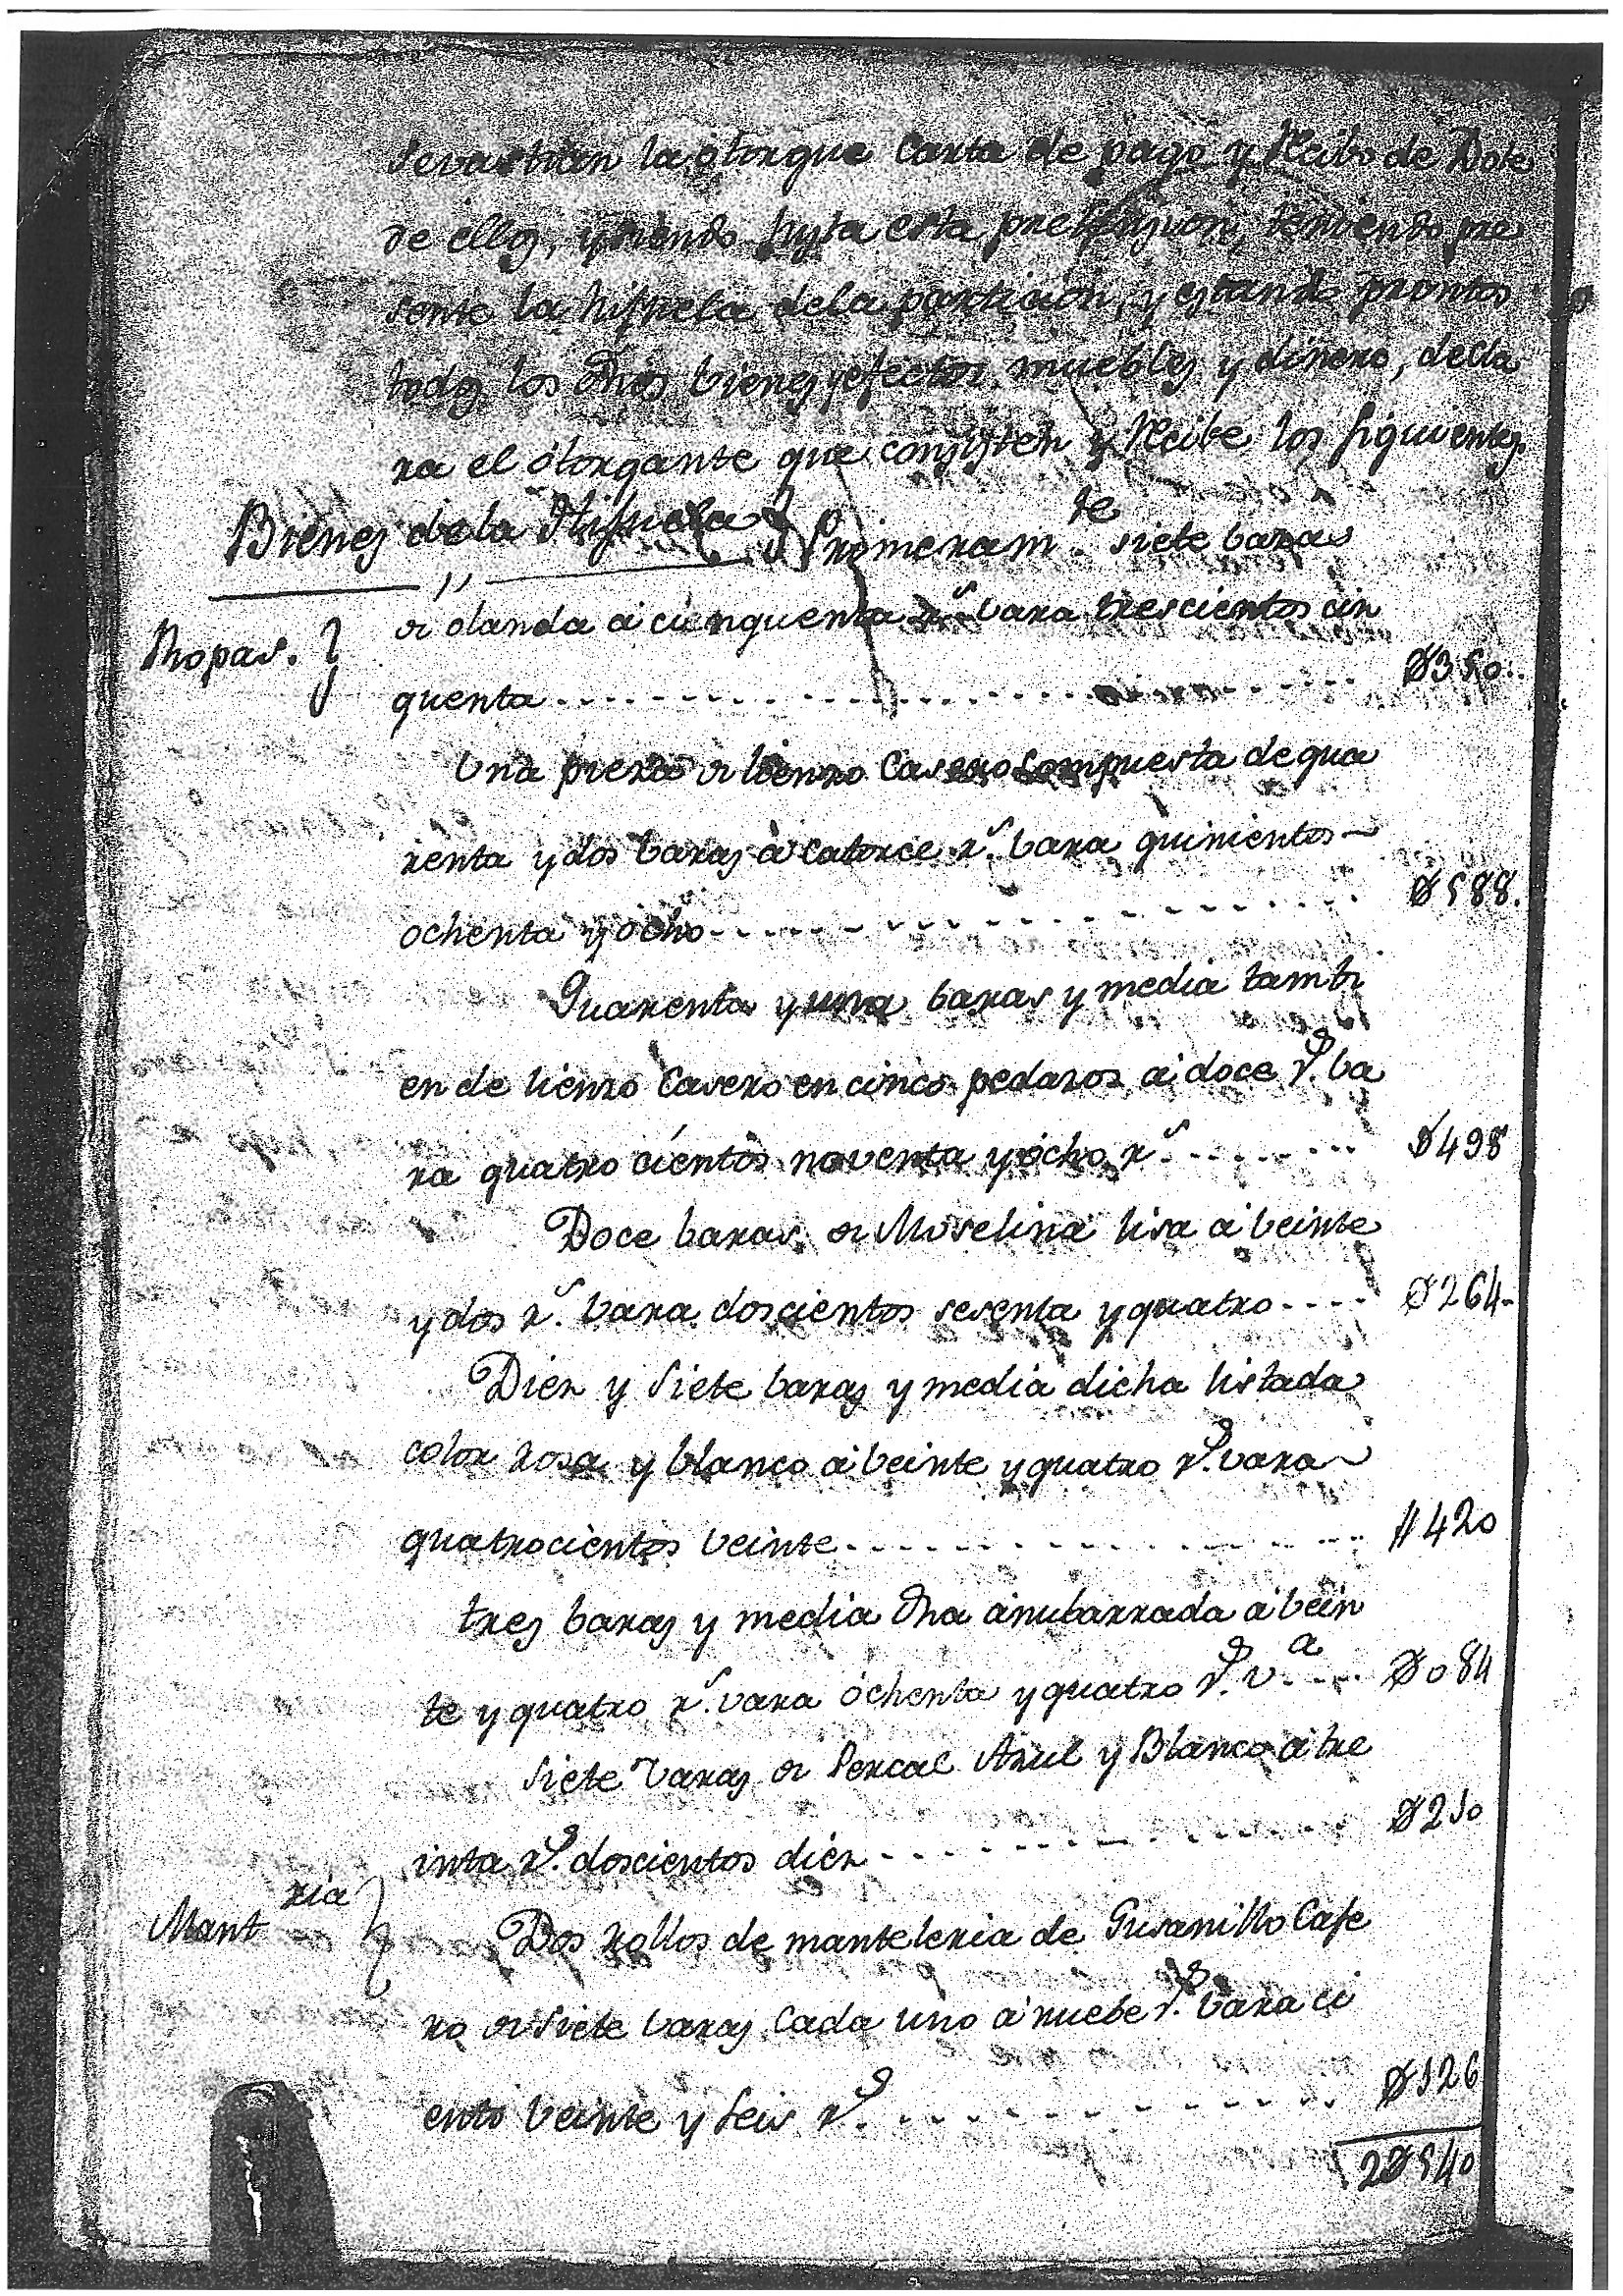 Sevastian la otorgue Carta de pago y Recibo de Dote
de ellos, y siendo justa esta pretension, teniendo pre
sente la hijuela de la particion, y estando prontos
todos los dhos bienes y efectos muebles y dinero, decla
ra el otorgante que consisten y Recibe los siguientes.
Bienes de la Hijuela } Primeram.te siete baras
Ropas. }
de olanda a cinquenta r.s vara trescientos cin
quenta ---- D350..
Una pieza de lienzo Casero compuesta de qua
renta y dos baras à catorce r.s bara quinientos
ochenta y ocho ---- D588.
Quarenta y una baras y media tambi
en de lienzo Casero en cinco pedazos a doce r.s ba
ra quatro cientos noventa y ocho r.s ---- D498
Doce baras de Moselina lisa a beinte
y dos r.s bara doscientos sesenta y quatro ---- D264-
Diez y siete baras y media dicha listada
color rosa y blanco a beinte y quatro r.s vara
quatrocientos veinte ---- D420
tres baras y media dha anubarrada a bein
te y quatro r.s vara ochenta y quatro r.s v.a ---- D084
Siete varas de Percal Azul y Blanco a tre
inta r.s doscientos diez ---- D210
Mant ria }
Dos rollos de manteleria de Gusanillo Case
ro de siete baras cada uno a nuebe r.s bara ci
ento beinte y seis r.s ---- D126
2D540